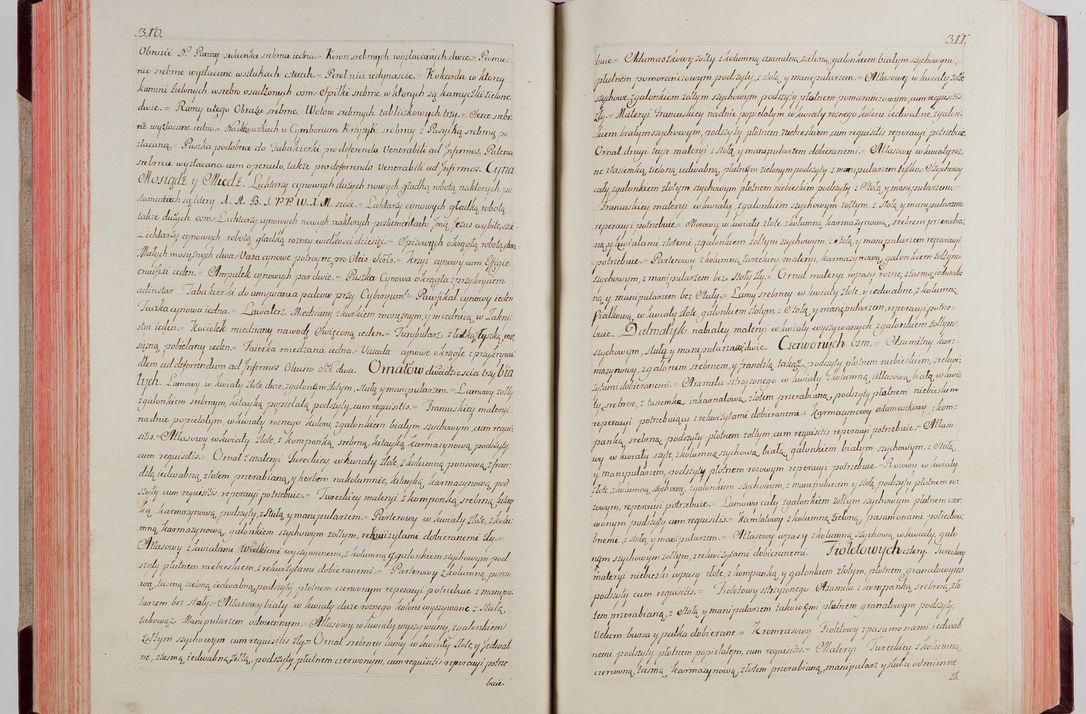 310.
Obrazie N. Panny sukienka srebrna iedna.= Koron srebrnych wyzłacanych dwie.= Promie-
nie srebrne wyzłacane w sztukach czterech.= Pereł nici iedynascie.= Kokarda w ktorey
kamieni zielonych w srebro osadzonych osm.= Szpilki srebrne w ktorych są kamyszki zielone
dwie.= Ramy u tego Obrazu srebrne.= Wotow srebrnych tabliczkowych trzy.= Serce srebr-
ne wyzłacane iedno.= Cymborium Krzyżyk srebrny z Passyiką srebrną po-
złacaną.= Puszka podobna do Tabakierki pro deferendo Venerabili ad Infirmos. Patena
srebrna wyzłacana cum operculo, także pro deferendo Venerabili ad Infirmos. Cyna
Mosiądz y Miedź. Lichtarzy cynowych dużych nowych gładką robotą na ktorych po-
stumentach są litery I. A. B. I. P. P. W. I. M. sześć.= Lichtarzy cynowych gładką robotą
także dużych osm.= Lichtarzy cynowych nowych na ktorych postumentach Imię Jezus wybite, sześć
Lichtarzy cynowych robotą gładką rozney wielkości dziesięć.= Spiżowych okrągłą robotą dwa
Małych mosiężnych dwa.= Vasa cynowe potroyne pro Oleis Scłis.= Krzyż cynowy cum Effigie
cruifixi ieden.= Ampułek cynowych par dwie.= Puszka Cynowa okrągła z przykryciem
ad instar Tabakierki do umywania palcow przy Cyboryum.= Pawykał cynowy ieden
Tacka cynowa iedna.= Lawaterz Miedziany z kurkiem mosiężnym, y miednicą w Zakry-
styi ieden.= Kociołek miedziany na wodę Swięconą ieden.= Turybularz z Łodką Łyszką mo-
syżną pobielany ieden.= Faierka miedziana iedna.= Vasada cynowe okrągłe z przykrywa-
dłem ad deferendum ad Infirmos Oleum Scł. dwa. Ornatow dwadziescia trzy bia-
łych. Lamowy w kwiaty złote dwie, z galonem złotym, Stułą y manipularzem.= Lamowy żołty
z galonkiem srebrnym, kitayką popielatą podszyty, cum requisitis.= Francuskiey materyi
na dnie popielatym, w kwiaty roznego koloru, z galonkiem białym szychowym, cum requi-
sitis.= Atłasowy w kwiaty złote, z komponką srebrną, kitayką karmazynową, podszyty,
cum requisitis.= Ornat z materyi Tureckiey w kwiaty złote, z kolumną ponsową z fran-
dzlą iedwabną złotem przerabianą, y herbem na kolumnie, kitayką, karmazynową pod-
szyty cum requisitis reperacyi potrzebuie.= Tureckiey materyi z komponką srebrną kitay-
ką karmazynową, podszyty, z Stułą y manipularzem.= Parterowy w kwiaty złote, z kolu-
mną karmazynową, galonkiem szychowym żołtym, rekwizytami dobieranemi zły.=
Atłasowy z kwiatami Wielkiemi wyszywanem, z kolumną y galonkiem szychowym pod-
szyty płotnem niebieskiem, z rekwizytami dobieranemi.= Parterowy Z kolumną poro-
wą, tasmą zieloną iedwabną, podszyty płotnem czerwonym reperacyi potrzebuie z manipu-
larzem bez stuły.= Atłasowy biały w kwiaty duże roznego koloru wyszywane z Stułą,
takowoż Manipularzem odmiennym.= Atłasowy w kwiaty wyszywany, z galonkiem
Zołtym szychowym cum requisitis zły.= Ornat srebrney lamy w kwiaty złote, y jedwab-
ne, tasmą iedwabną żołtą, podszyty płotnem czerwonym, cum requisitis reperacyi potrze-
buie
311.
buie.= Adamaszkowy żołty z kolumną axamitną zieloną, galonkiem białym szychowym,
płotnem pomaranczowym podszyty, z stułą y manipularzem.= Atłasowy w kwiaty żołte
szychowe, z galonkiem żołtym szychowym podszyty płotnem pomaranczowym, cum requisitis
zły.= Materyi Francuskiey na dnie popielatym w kwiaty roznego koloru iedwabne, z galon-
kiem białym szychowym, podszyty płotnem niebieskiem cum requisitis reperacyi potrzebuie.
Ornat drugi teyże materyi z stułą y manipularzem dobieranemi.= Atłasowy w kwiaty roż-
ne z tasiemką, zieloną, iedwabną, płotnem zielonym podszyty z manipularzem tylko.= Szychowy
cały z galonkiem złotym szychowym płotnem niebieskim podszyty z Stułą y manipularzem.=
Francuskiey materyi w kwiaty z galonkiem szychowym żołtym z Stułą, y manipularzem
reperacyi potrzebuie.= Morowy w kwiaty złote z kolumną karmazynową, srebrem przerabia-
ną z kwiatami złotemi, z galonkiem żołtym szychowym, z stułą, y manipularzem reperacyi
potrzebuie.= Parterowy z kolumną tureckiey materyi, karmazynową, galonkiem żołtym
szychowym, z manipularzem bez stuły zły.= Ornat materyi w pasy rożne, z tasmą iedwab-
ną, y manipularzem bez Stuły.= Lamy srebrney w kwiaty złote, y iedwabne, z kolumną
Fiałkową, w kwiaty złote, galonkiem żołtym, z Stułą, y manipularzem, reperacyi potrze-
buie. Dalmatyk nabiałey materyi w kwiaty wyszywanych z galonkiem żołtym
szychowym, stułą y manipularzem dwie. Czerwonych osm.= Axamitny kar-
mazynowy, z galonem srebrnem, y frandzlą takąż, podszyty płotnem niebieskiem, z rekwi-
zytami dobieranemi.= Axamitu strzyżonego w kwiaty z kolumną atłasową, białą, w kwia-
ty, srebrne, z tasiemką, inkarnatową, złotem przerabianą, podszyty płotnem niebieskim
reperacyi potrzebuiący z rekwizytami dobieranemi.= Karmazynowy adamaszkowy z kom-
panką, srebrną, podszyty płotnem żołtym cum requisitis reperacyi potrzebuie.= Atłaso-
wy w kwiaty szyte, z kolumną szychową białą, galonkiem białym szychowym, z Stułą,
y manipularzem, podszyty płotnem rożowym reperacyi potrzebuie.= Rożowy w kwiaty
złote, z kolumną, szychową, z galonkiem szychowym, z manipularzem y stułą, podszyty płotnem ro-
żowym, reperacyi potrzebuie.= Lamowy cały z galonkiem żołtym szychowym płotnem czer-
wonym podszyty cum requisitis.= Kamlotowy z kolumną zieloną, pasamonami potrzebo-
bnemi, z stułą, y manipularzem.= Atłasowy w pasy z kolumną szychową, w kwiaty, galo-
nem szychowym żołtym, z rekwizytami dobieranemi. Fioletowych cztery. Tureckiey
materyi niebieskiey w pasy złote, z kompanką y galonkiem złotym, płotnem granatowym
podszyty cum requisitis.= Fioletowy strzyżonego Axamitu z kompanką srebrną, zło-
tem przerabianą, z Stułą y manipularzem takowemi płotnem granatowym podszyty,
Velum bursa y palka dobierane.= Kromrasowy Fioletowy z pasamonami iedwab-
nemi podszyty płotnem popielatym, cum requisitis.= Materyi Tureckiey z kolumną
czerwoną, tasmą, karmazynową, złotem przerabianą, manipularz y stuła odmienne
zł.